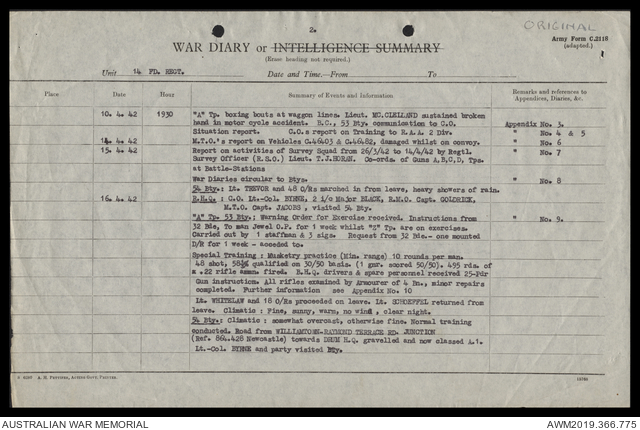 ORIGINAL
2.
WAR DIARY or INTELLIGENCE SUMMARY
(Erase heading not required.)
Army Form C.2118
(adapted.)
Unit 14 FD. REGT. Date and Time.—From To
Place Date Hour Summary of Events and Information Remarks and references to Appendices, Diaries, &c.
10.4.42 1930 "A" Tp. boxing bouts at waggon lines. Lieut. MC.CLELLAND sustained broken
hand in motor cycle accident. B.C., 53 Bty. communication to C.O. Appendix No. 3.
Situation report. C.O.s report on Training to R.A.A. 2 Div. " No. 4 & 5
14.4.42 M.T.O.'s report on Vehicles C.46403 & C.46482, damaged whilst on convoy. " No. 6
15.4.42 Report on activities of Survey Squad from 26/3/42 to 14/4/42 by Regtl. " No. 7
Survey Officer (R.S.O.) Lieut. T.J.HORAN. Co-ords. of Guns A,B,C,D, Tps.
at Battle-Stations
War Diaries circular to Btys. " No. 8
54 Bty.: Lt. TREVOR and 48 O/Rs marched in from leave, heavy showers of rain.
16.4.42 R.H.Q.: C.O. Lt.-Col. BYRNE, 2 i/c Major BLACK, R.M.O. Capt. GOLDRICK,
M.T.O. Capt. JACOBS, visited 54 Bty.
"A" Tp. 53 Bty: Warning Order for Exercise received. Instructions from " No. 9.
32 Bde, To man Jewel O.P. for 1 week whilst "Z" Tp. are on exercises.
Carried out by 1 staffman & 3 sigs. Request from 32 Bde.- one mounted
D/R for 1 week - acceded to.
Special Training : Musketry practice (Min. range) 10 rounds per man.
48 shot, 58⅓% qualified on 30/50 basis. (1 gnr. scored 50/50). 495 rds. of
a .22 rifle ammn. fired. B.H.Q. drivers & spare personnel received 25-Pdr
Gun instruction. All rifles examined by Armourer of 4 Bn., minor repairs
completed. Further information see Appendix No. 10
Lt. WHITELAW and 18 O/Rs proceeded on leave. Lt. SCHOEFFEL returned from
leave. Climatic : Fine, sunny, warm, no wind, clear night.
54 Bty.: Climatic : somewhat overcast, otherwise fine. Normal training
conducted. Road from WILLIAMTOWN-RAYMOND TERRACE RD. JUNCTION
(Ref. 864.428 Newcastle) towards DRUM H.Q. gravelled and now classed A.1.
Lt.-Col. BYRNE and party visited Bty.
AUSTRALIAN WAR MEMORIAL AWM2019.366.775